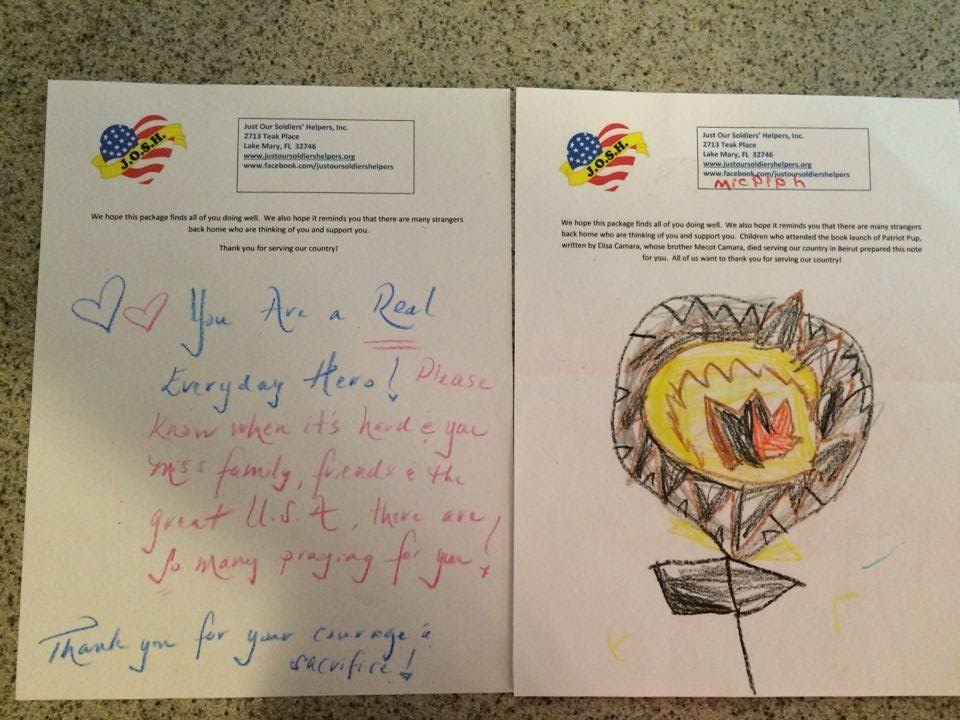 J.O.S.H.
Just Our Soldiers' Helpers, Inc.
2713 Teak Place
Lake Mary, FL 32746
www.justoursoldiershelpers.org
www.facebook.com/justoursoldiershelpers
We hope this package finds all of you doing well. We also hope it reminds you that there are many strangers
back home who are thinking of you and support you.
Thank you for serving our country!
You Are a Real
Everyday Hero! Please
Know when it's hard & you
miss family, friends & the
great U.S.A, there are
so many praying for you!
Thank you for your courage &
sacrifice!
J.O.S.H.
Just Our Soldiers' Helpers, Inc.
2713 Teak Place
Lake Mary, FL 32746
www.justoursoldiershelpers.org
www.facebook.com/justoursoldiershelpers
We hope this package finds all of you doing well. We also hope it reminds you that there are many strangers
back home who are thinking of you and support you. Children who attended the book launch of Patriot Pup,
written by Elisa Camara, whose brother Mecot Camara, died serving our country in Beirut prepared this note
for you. All of us want to thank you for serving our country!